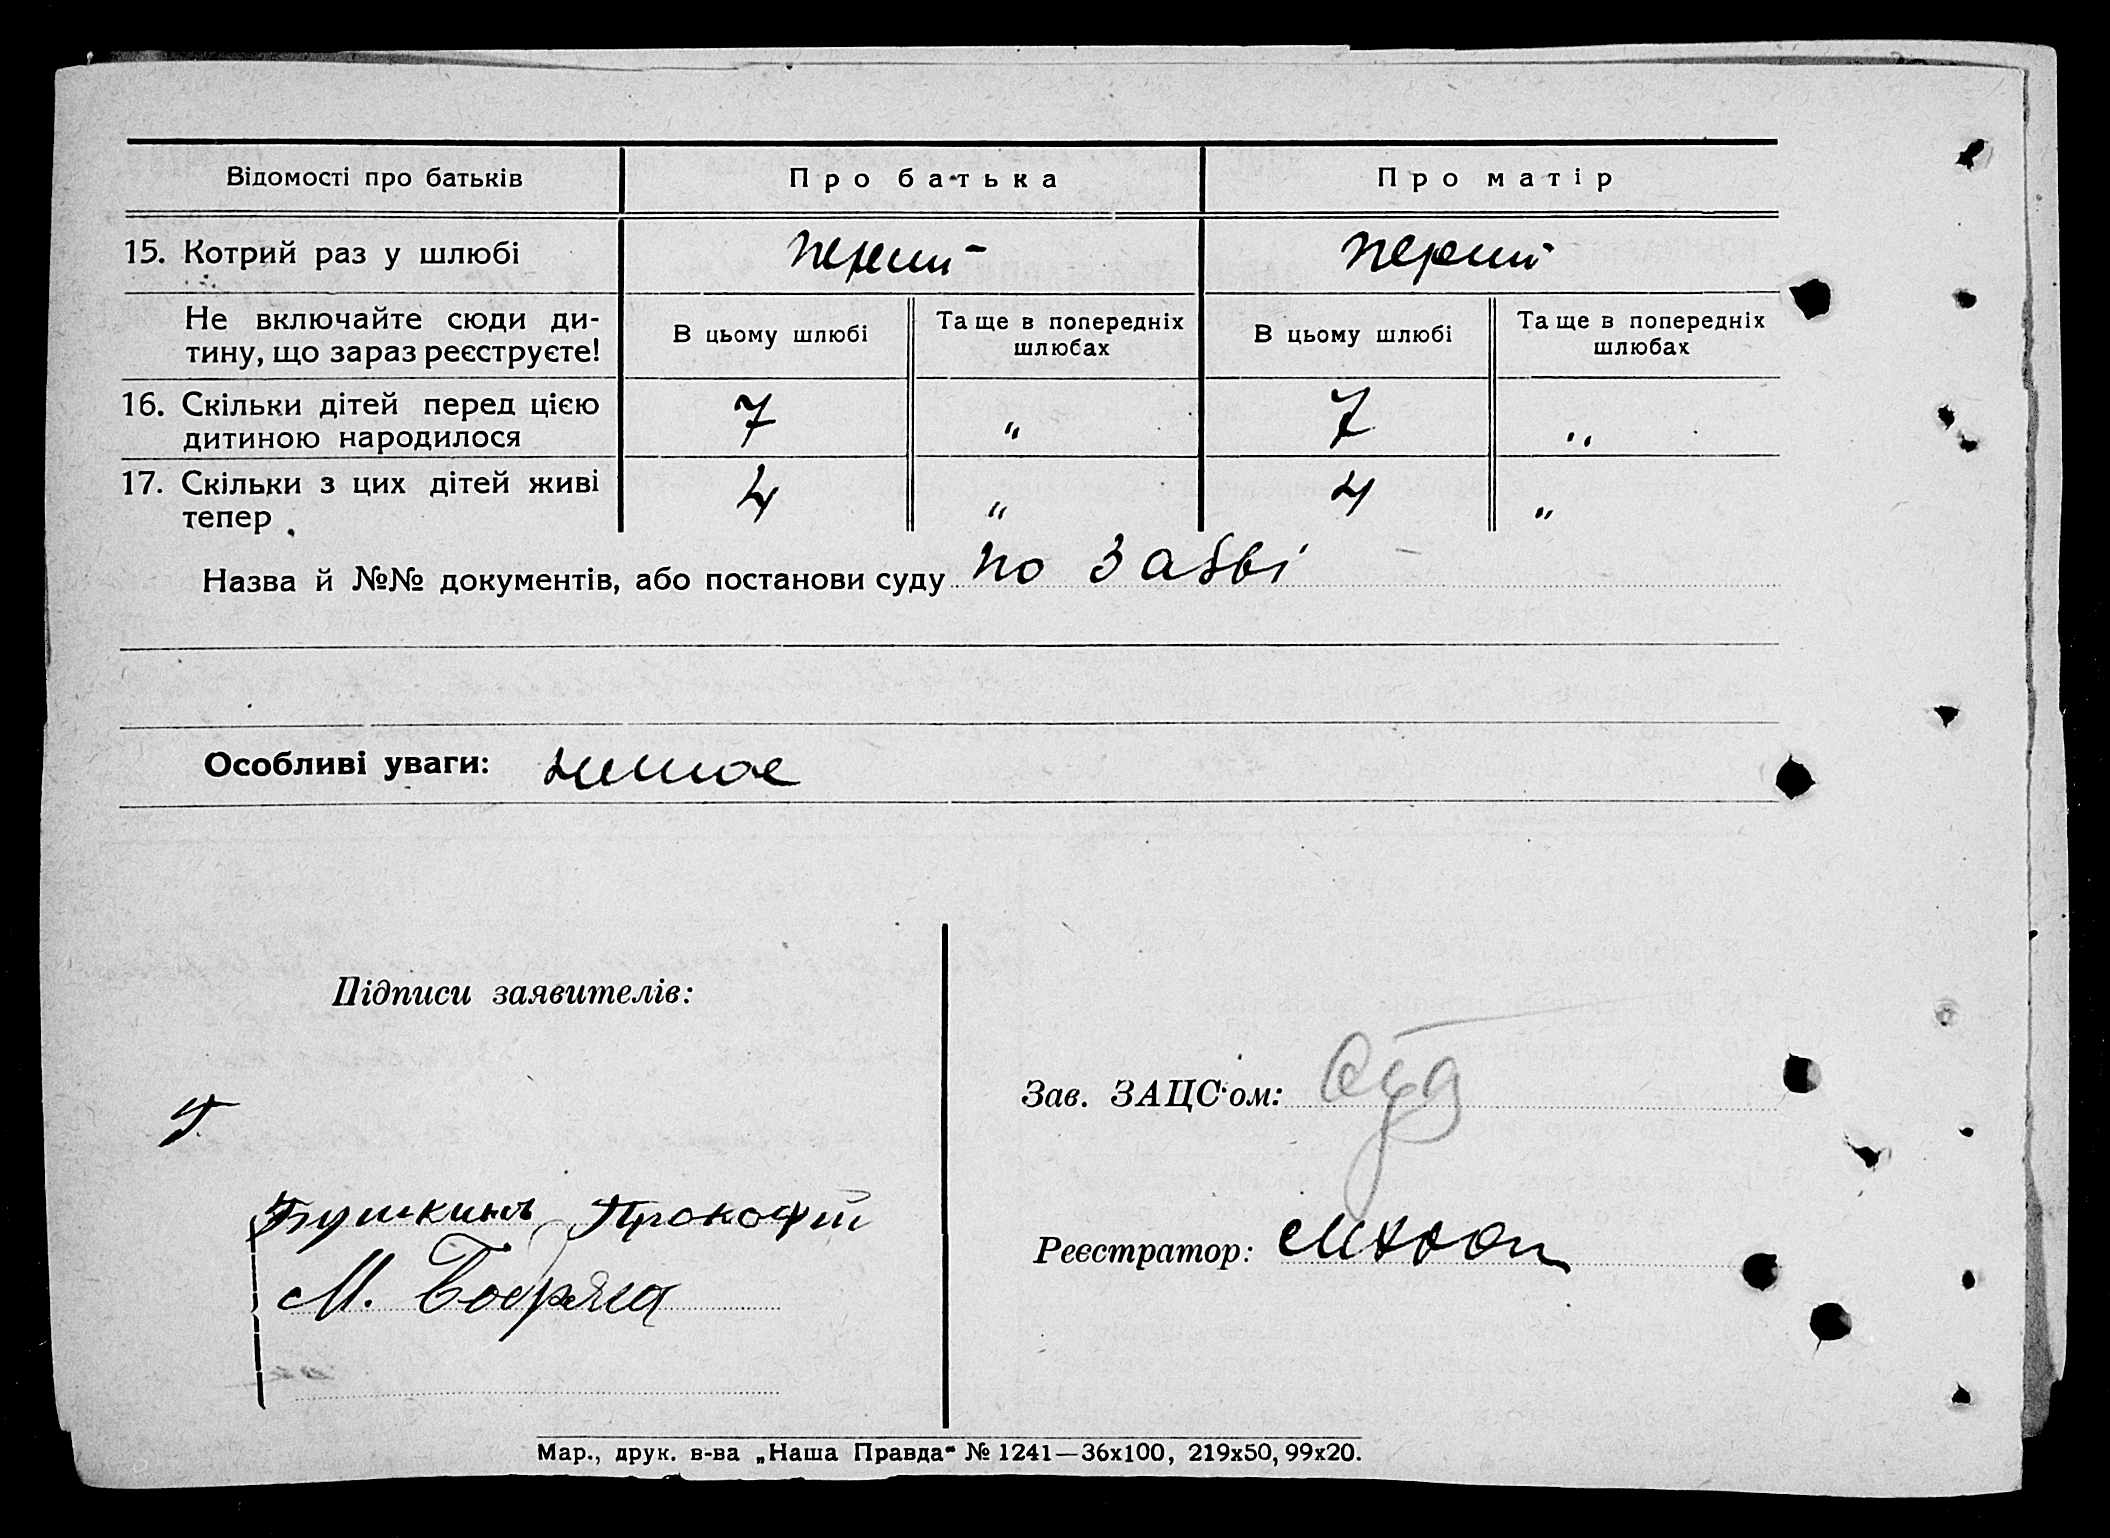 Відомості про батьків Про батька Про матір
15. Котрий раз у шлюбі перший перший
Не включайте сюди ди-
тину, що зараз реєструєте!
В цьому шлюбі Та ще в попередніх шлюбах В цьому шлюбі Та ще в попередніх шлюбах
16. Скільки дітей перед цією
дитиною народилося 7 " 7 "
17. Скільки з цих дітей живі
тепер 4 " 4 "
Назва й №№ документів, або постанови суду по заяві
Особливі уваги: немає
Підписи заявителів:
Зав. ЗАЦС'ом:
Пушкинъ Прокофій
Реєстратор:
М.
Мар., друк. в-ва „Наша Правда" № 1241—36х100, 219х50, 99х20.